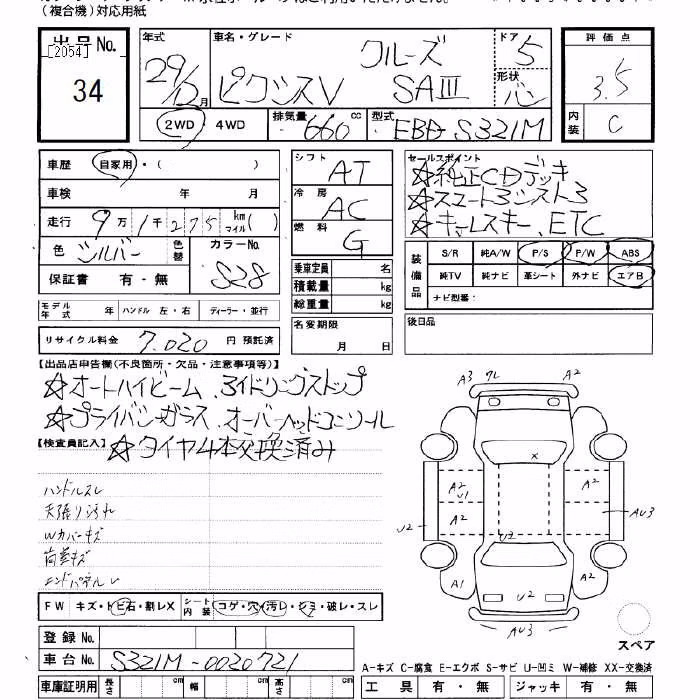 (複合機)対応用紙
出品No. [2054] 34
年式 29/12月
車名・グレード クルーズ ピクシスV SAIII
ドア 5
形状 バン
評価点 3.5
内装 C
2WD・4WD 排気量 660 cc 型式 EBD-S321M
車歴 自家用・( )
車検 年 月
走行 9万1千275 km マイル( )
色 シルバー 色替 カラーNo. S28
保証書 有・無
シフト AT
冷房 AC
燃料 G
乗車定員 名
積載量 kg
総重量 kg
セールスポイント
☆純正CDデッキ
☆スマートアシスト3
☆キーレスキー、ETC
装備品 S/R 純A/W P/S P/W ABS
純TV 純ナビ 革シート 外ナビ エアB
ナビ型番:
モデル年式 年 ハンドル 左・右 ディーラー・並行
リサイクル料金 7.020 円 預託済
名変期限 月 日
後日品
【出品店申告欄(不良箇所・欠品・注意事項等)】
☆オートハイビーム、アイドリングストップ
☆プライバシーガラス、オーバーヘッドコンソール
☆タイヤ4本交換済み
【検査員記入】
ハンドルスレ
天張り汚れ
Wカバーキズ
荷室キズ
エンドパネルレ
FW キズ・トビ石・割レX シート内装 コゲ・穴・汚レ・シミ・破レ・スレ
登録No.
車台No. S321M-0020721
車庫証明用 長さ cm 幅 cm 高さ cm
A3 ワレ A2
X
A2 U1 A2
A2
U2 AU3
U2
A1 U2 A2
AU3
スペア
A-キズ C-腐食 E-エクボ S-サビ U-凹ミ W-補修 XX-交換済
工具 有・無 ジャッキ 有・無